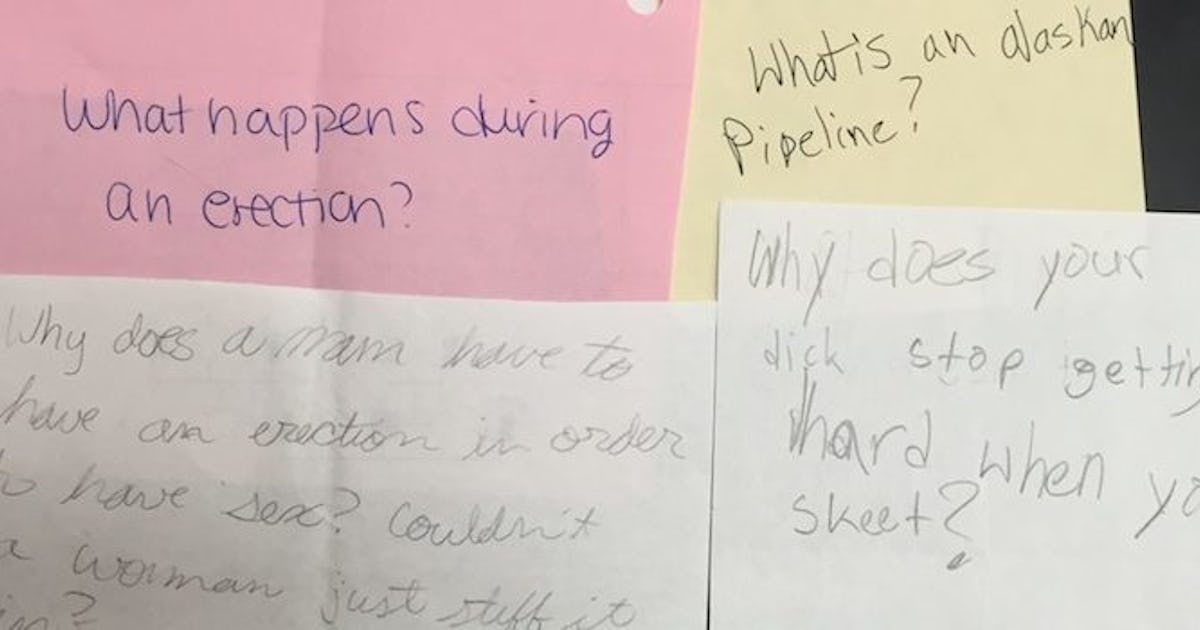 What happens during
an erection?
What is an alaskan
Pipeline?
Why does a man have to
have an erection in order
to have sex? Couldn't
a woman just stuff it
in?
Why does your
dick stop gettin
hard when yo
skeet?